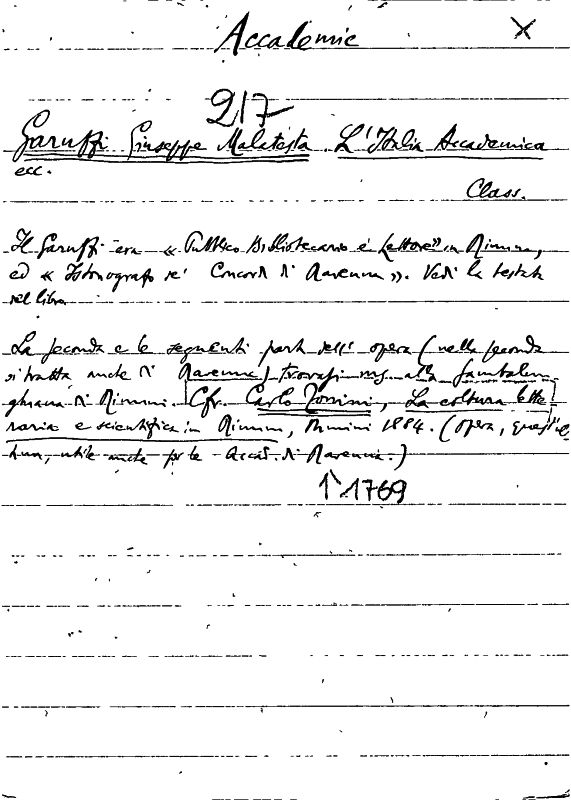 Accademie X
217
Garuffi Giuseppe Malatesta L'Italia Accademica
ecc.
Class.
Il Garuffi era « Pubblico Bibliotecario e Lettore » in Rimino,
ed « Istoriografo de' Concordi di Ravenna ». Vedi la testata
del libro
La seconda e le seguenti parti dell' opera (nella seconda
si tratta anche di Ravenna) trovasi ms. alla Gambalun
ghiana di Rimini. Cfr. Carlo Tonini, La coltura lette
raria e scientifica in Rimini, Rimini 1884. (Opera, quest'ul
tima, utile anche per le Accad. di Ravenna.)
1769